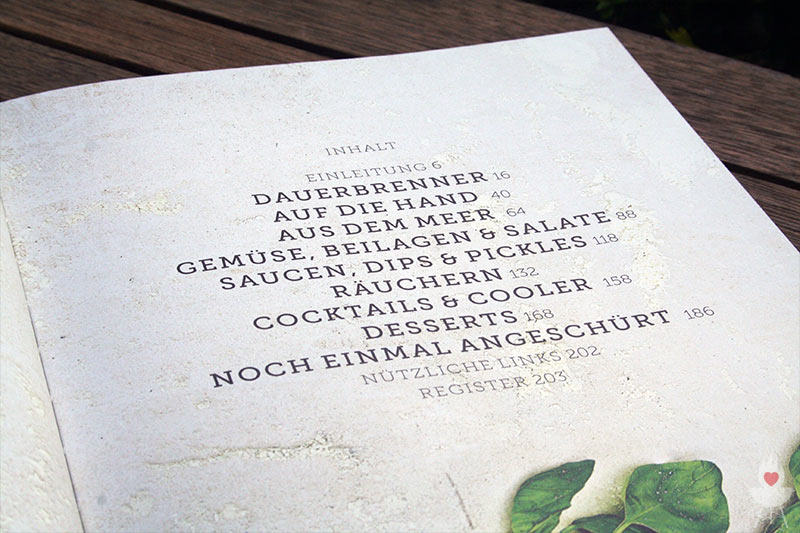 INHALT
EINLEITUNG 6
DAUERBRENNER 16
AUF DIE HAND 40
AUS DEM MEER 64
GEMÜSE, BEILAGEN & SALATE 88
SAUCEN, DIPS & PICKLES 118
RÄUCHERN 132
COCKTAILS & COOLER 158
DESSERTS 168
NOCH EINMAL ANGESCHÜRT 186
NÜTZLICHE LINKS 202
REGISTER 203